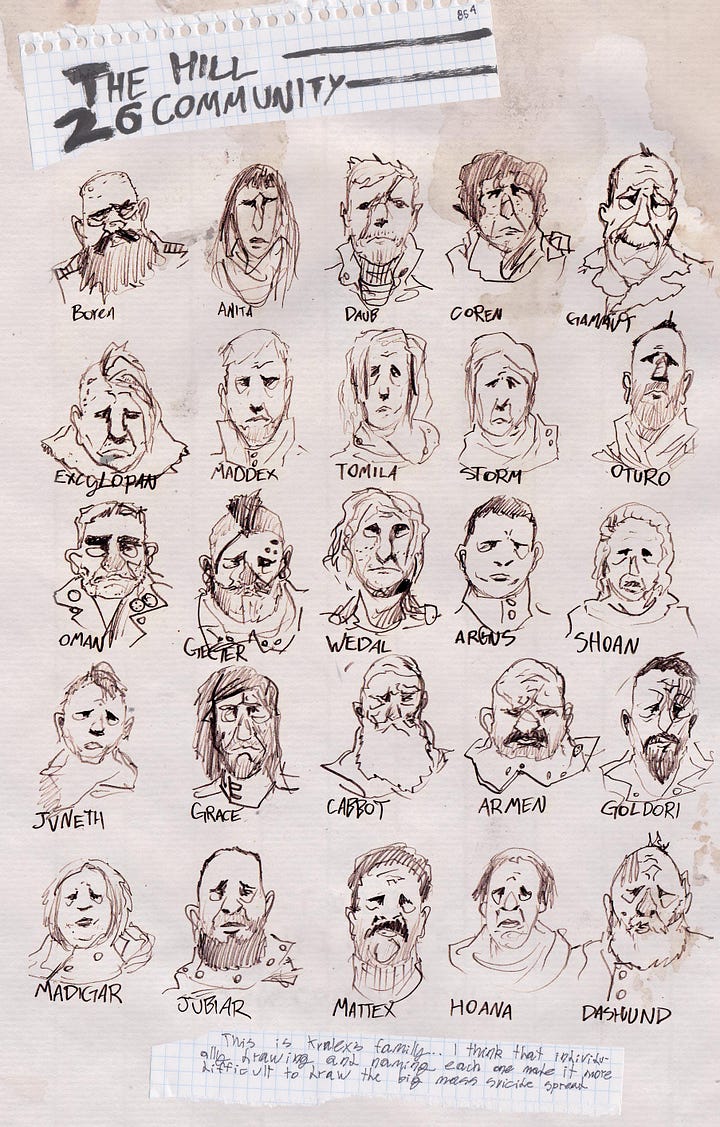 854
THE HILL
26 COMMUNITY
Boren ANITA DAUB COREN GAMMUT
EXCYLOPAN MADDEX TOMILA STORM OTURO
OMAN GECTER WEDAL ARGUS SHOAN
JUNETH GRACE CABBOT ARMEN GOLDORI
MADIGAR JUBIAR MATTEX HOANA DASHUND
This is Kralexs family.. I think that individu-
ally drawing and naming each one made it more
difficult to draw the big mass suicide spread